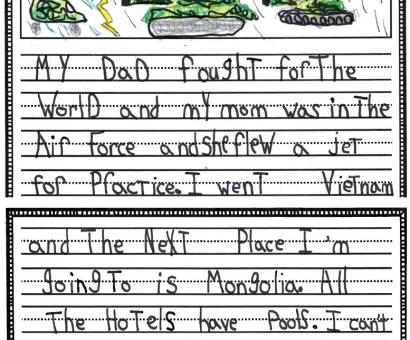 MY DaD fought for The
World and my mom was in The
Air Force and She flew a jeT
for Practice. I wenT VieTnam
and The NeXT Place I 'm
going To is Mongolia. All
The HoTels have Pools. I can't